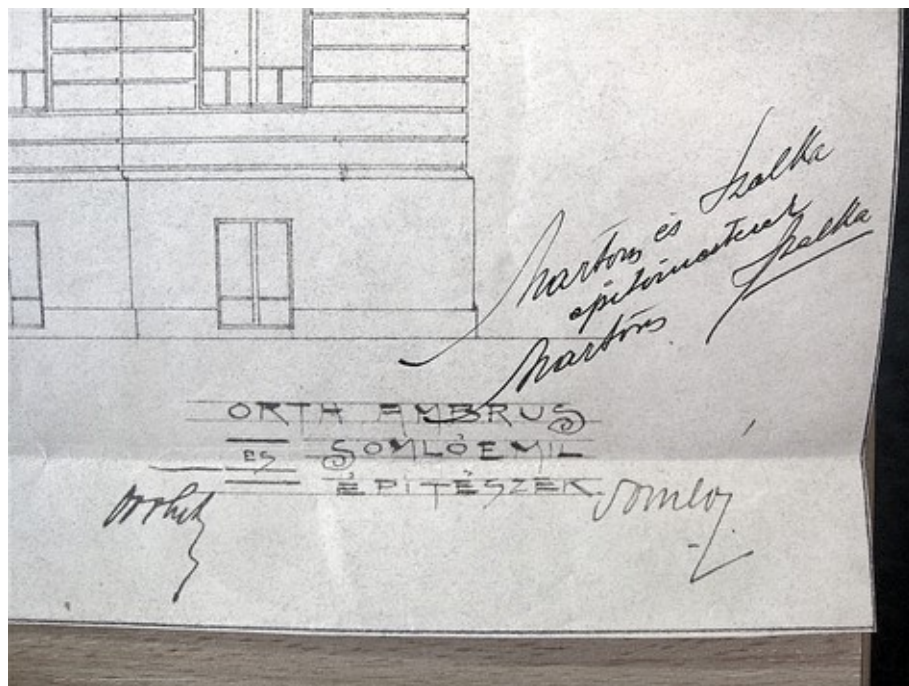 Martons és Szalka
építőmesterek
Martons Szalka
ORTH AMBRUS
ES SOMLÓ EMIL
ÉPITÉSZEK
Somló